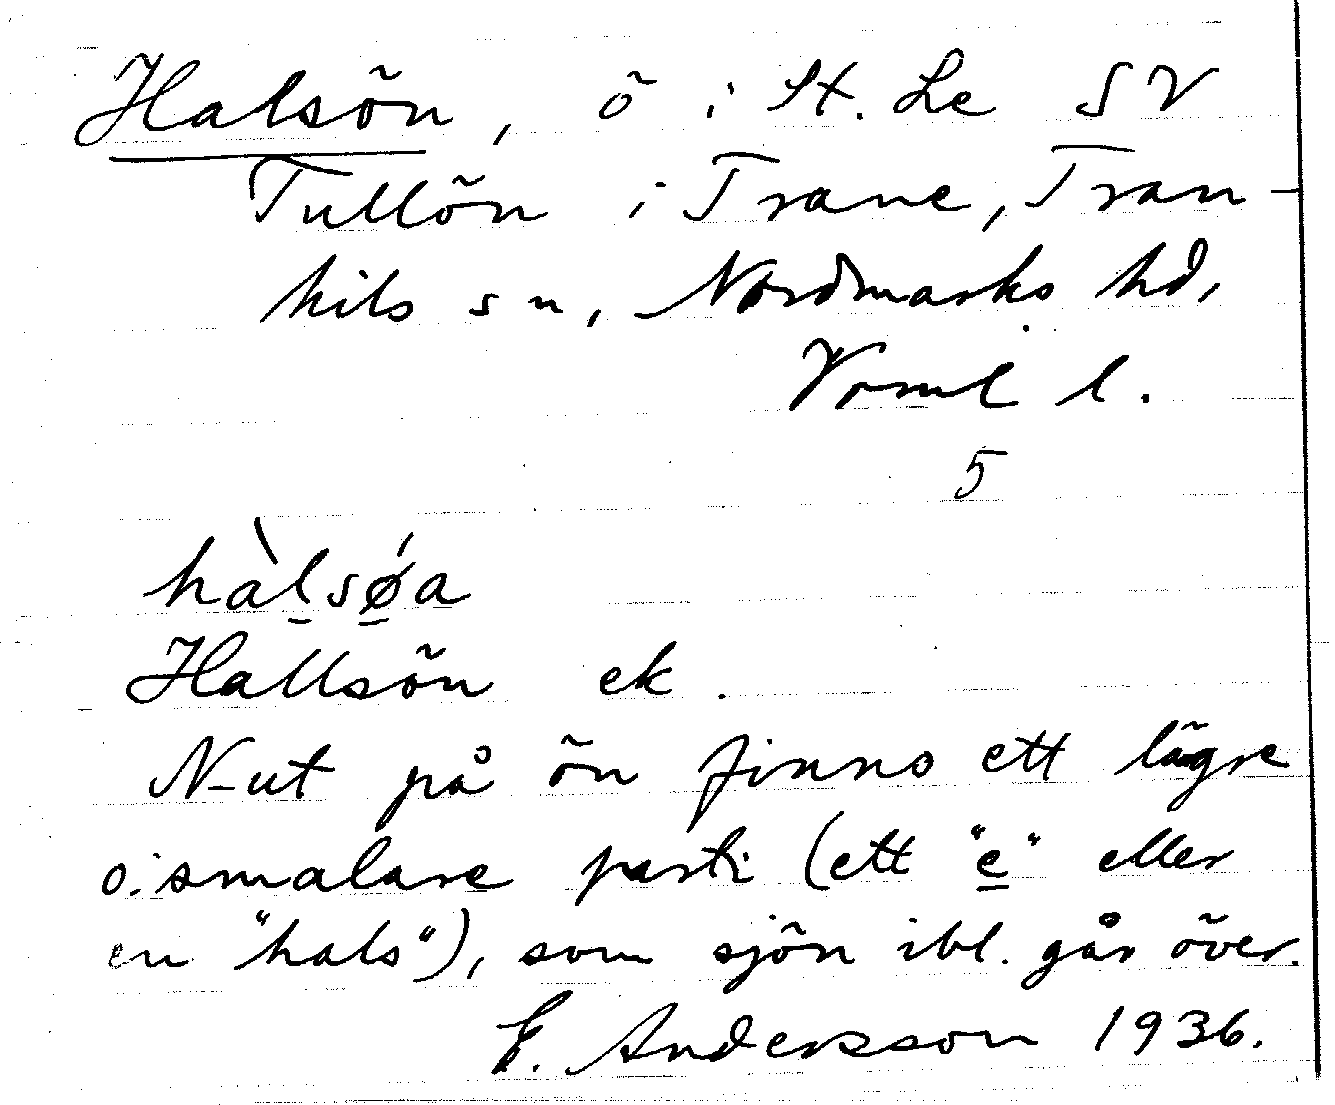 Halsön, ö i St. Le SV
Tullön i Trane, Tran-
kils sn, Nordmarks hd,
Vrml l.
5
hàlsǿa
Hallsön ek.
N-ut på ön finns ett lägre
o. smalare parti (ett "e" eller
en "hals"), som sjön ibl. går över.
E. Andersson 1936.